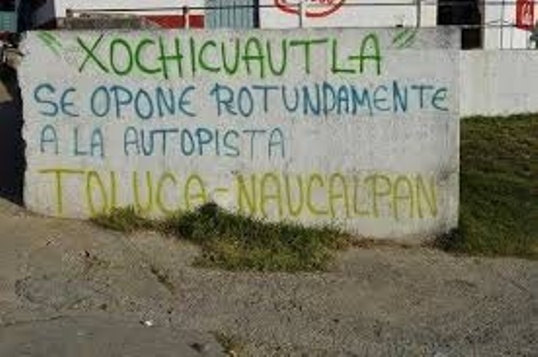 "XOCHICUAUTLA"
SE OPONE ROTUNDAMENTE
A LA AUTOPISTA
TOLUCA-NAUCALPAN